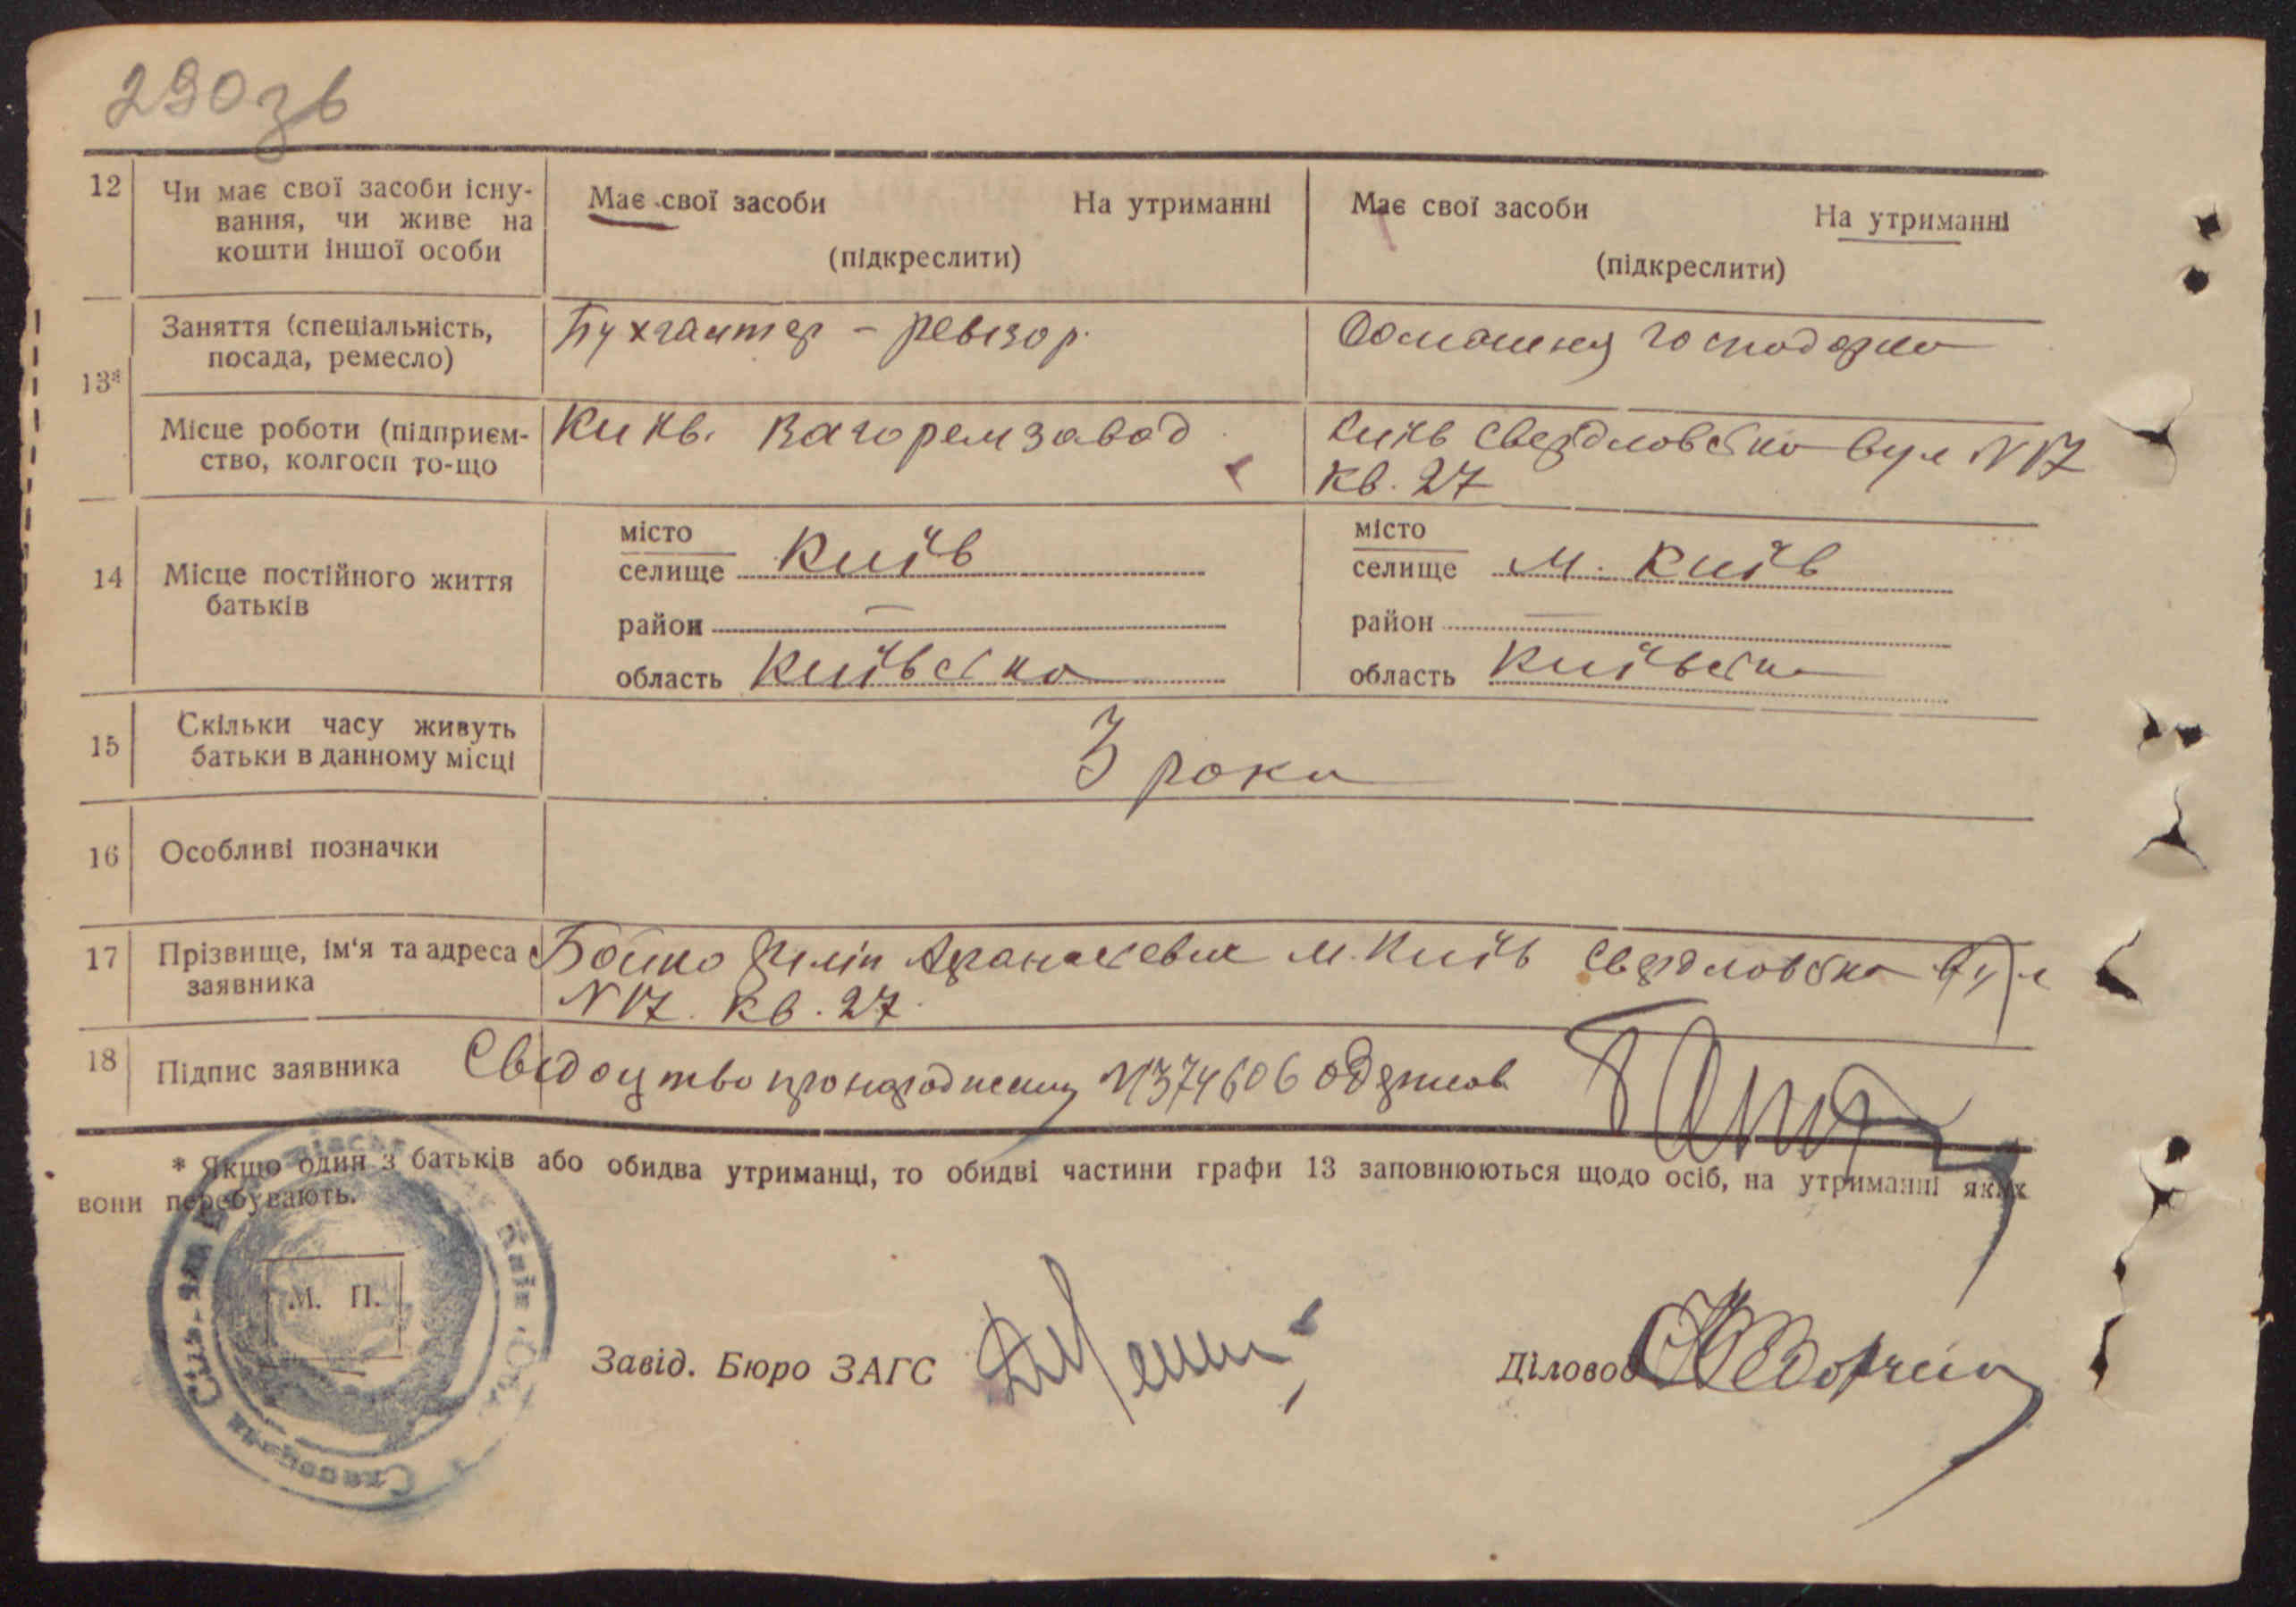 290зв
12 Чи має свої засоби існу-
вання, чи живе на
кошти іншої особи
Має свої засоби На утриманні
(підкреслити)
Має свої засоби На утриманні
(підкреслити)
13*
Заняття (спеціальність,
посада, ремесло)
Бухгалтер - ревізор.
Домашня господарка
Місце роботи (підприєм-
ство, колгосп то-що
Київ. Вагоремзавод
Київ Свердловська вул N 17
кв. 27
14 Місце постійного життя
батьків
місто
селище Київ
район —
область Київська
місто
селище м. Київ
район —
область Київська
15 Скільки часу живуть
батьки в данному місці
3 роки
16 Особливі позначки
17 Прізвище, ім'я та адреса
заявника
Бойко Філіп Афанасевич м. Київ Свердловська вул
N 17. кв. 27.
18 Підпис заявника Свідоцтво про народження N374606 одержав
* Якщо один з батьків або обидва утриманці, то обидві частини графи 13 заповнюються щодо осіб, на утриманні яких
вони перебувають.
М. П.
Завід. Бюро ЗАГС
Діловод